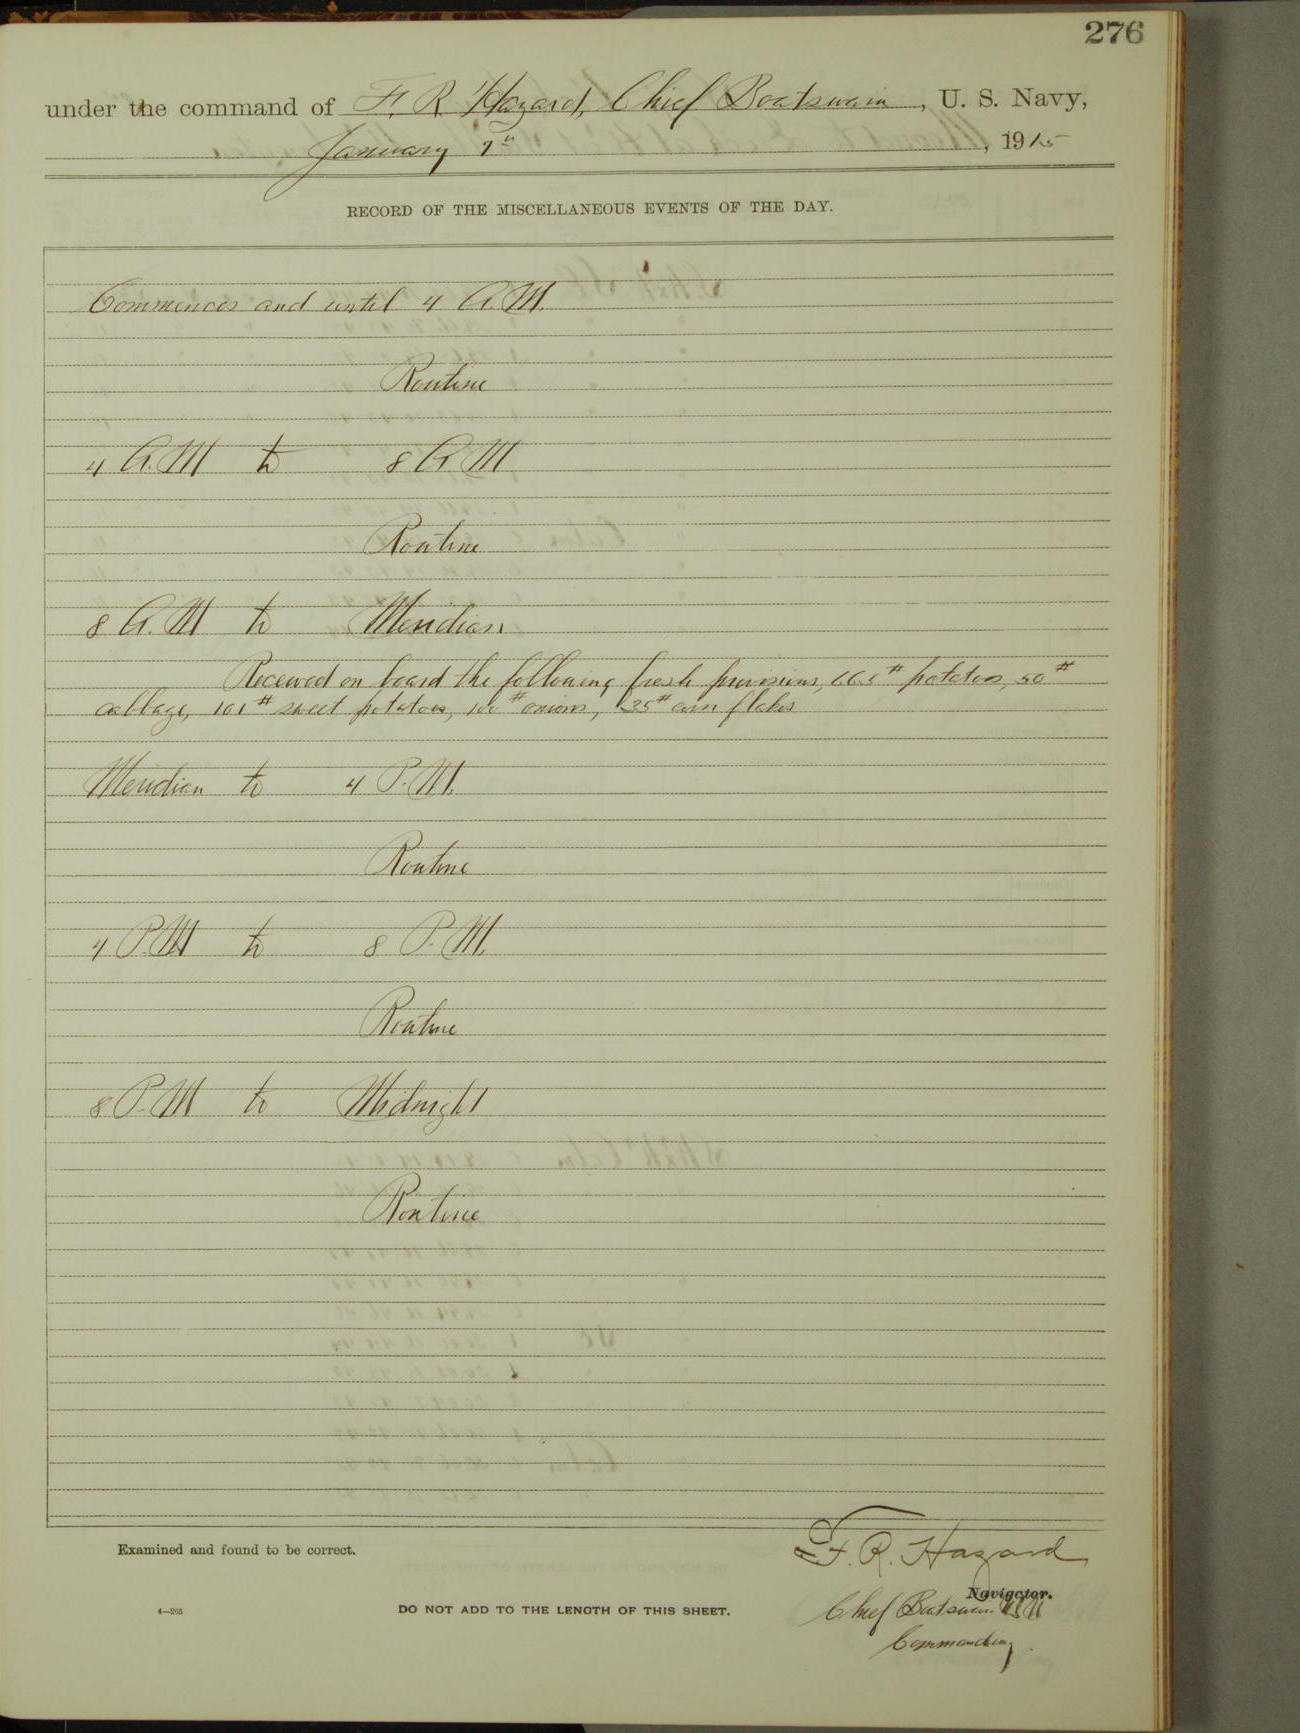 276
under the command of F. R. Hazard, Chief Boatswain, U. S. Navy,
January 7th, 1915
RECORD OF THE MISCELLANEOUS EVENTS OF THE DAY.
Commences and until 4 A.M.
Routine
4 A.M to 8 A.M
Routine
8 A.M to Meridian
Received on board the following fresh provisions, 665# potatoes, 50#
cabbage, 101# sweet potatoes, 100# onions, 35# corn flakes
Meridian to 4 P.M.
Routine
4 P.M to 8 P.M.
Routine
8 P.M to Midnight
Routine
Examined and found to be correct.
F. R. Hazard
Navigator.
4—265
DO NOT ADD TO THE LENGTH OF THIS SHEET.
Chief Boatswain USN
Commanding.